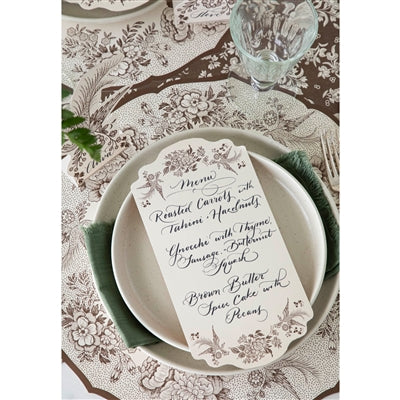 Menu
Roasted Carrots with
Tahini + Hazelnuts
Gnocche with Thyme,
Sausage, Butternut
Squash
Brown Butter
Spice Cake with
Pecans